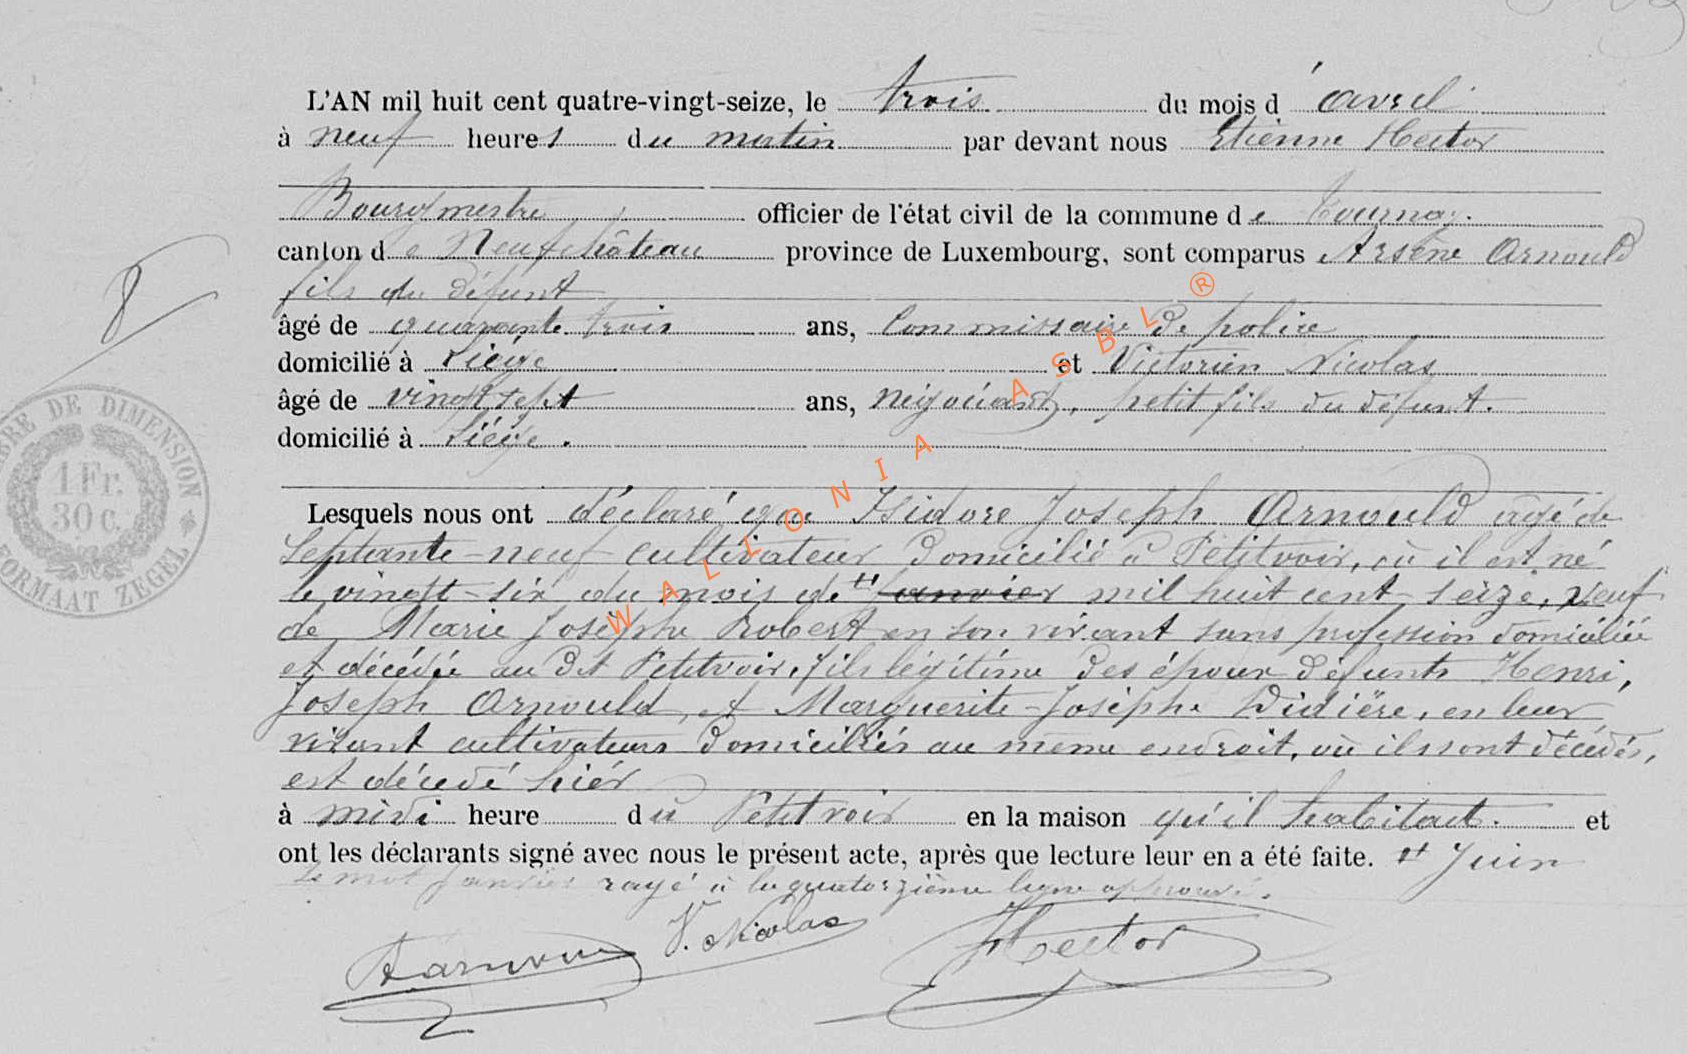 L'AN mil huit cent quatre-vingt-seize, le trois du mois d'avril
à neuf heures du matin par devant nous Etienne Hector
Bourgmestre, officier de l'état civil de la commune de Tournay.
canton de Neufchâteau province de Luxembourg, sont comparus Arsène Arnould
fils du défunt
âgé de quarante trois ans, Commissaire de police
domicilié à Liége et Victorien Nicolas
âgé de vingt sept ans, négociant, petit fils du défunt.
domicilié à Liége.
Lesquels nous ont déclaré que Isidore Joseph Arnould agé de
Septante-neuf cultivateur domicilié à Petitvoir, où il est né
le vingt-six du mois de janvier mil huit cent seize, veuf
de Marie Josèphe Robert en son vivant sans profession domiciliée
et décédée au dit Petitvoir, fils légitime des époux défunts Henri,
Joseph Arnould, et Marguerite-Josèphe Didière, en leur
vivant cultivateurs domiciliés au même endroit, où ils sont décédés,
est décédé hier
à midi heure du Petitvoir en la maison qu'il habitait. et
ont les déclarants signé avec nous le présent acte, après que lecture leur en a été faite. Juin
Le mot janvier rayé à la quatorzième ligne approuvé.
V. Nicolas
Hector
TIMBRE DE DIMENSION
1 Fr.
30 c.
FORMAAT ZEGEL
WALLONIA ASBL ®